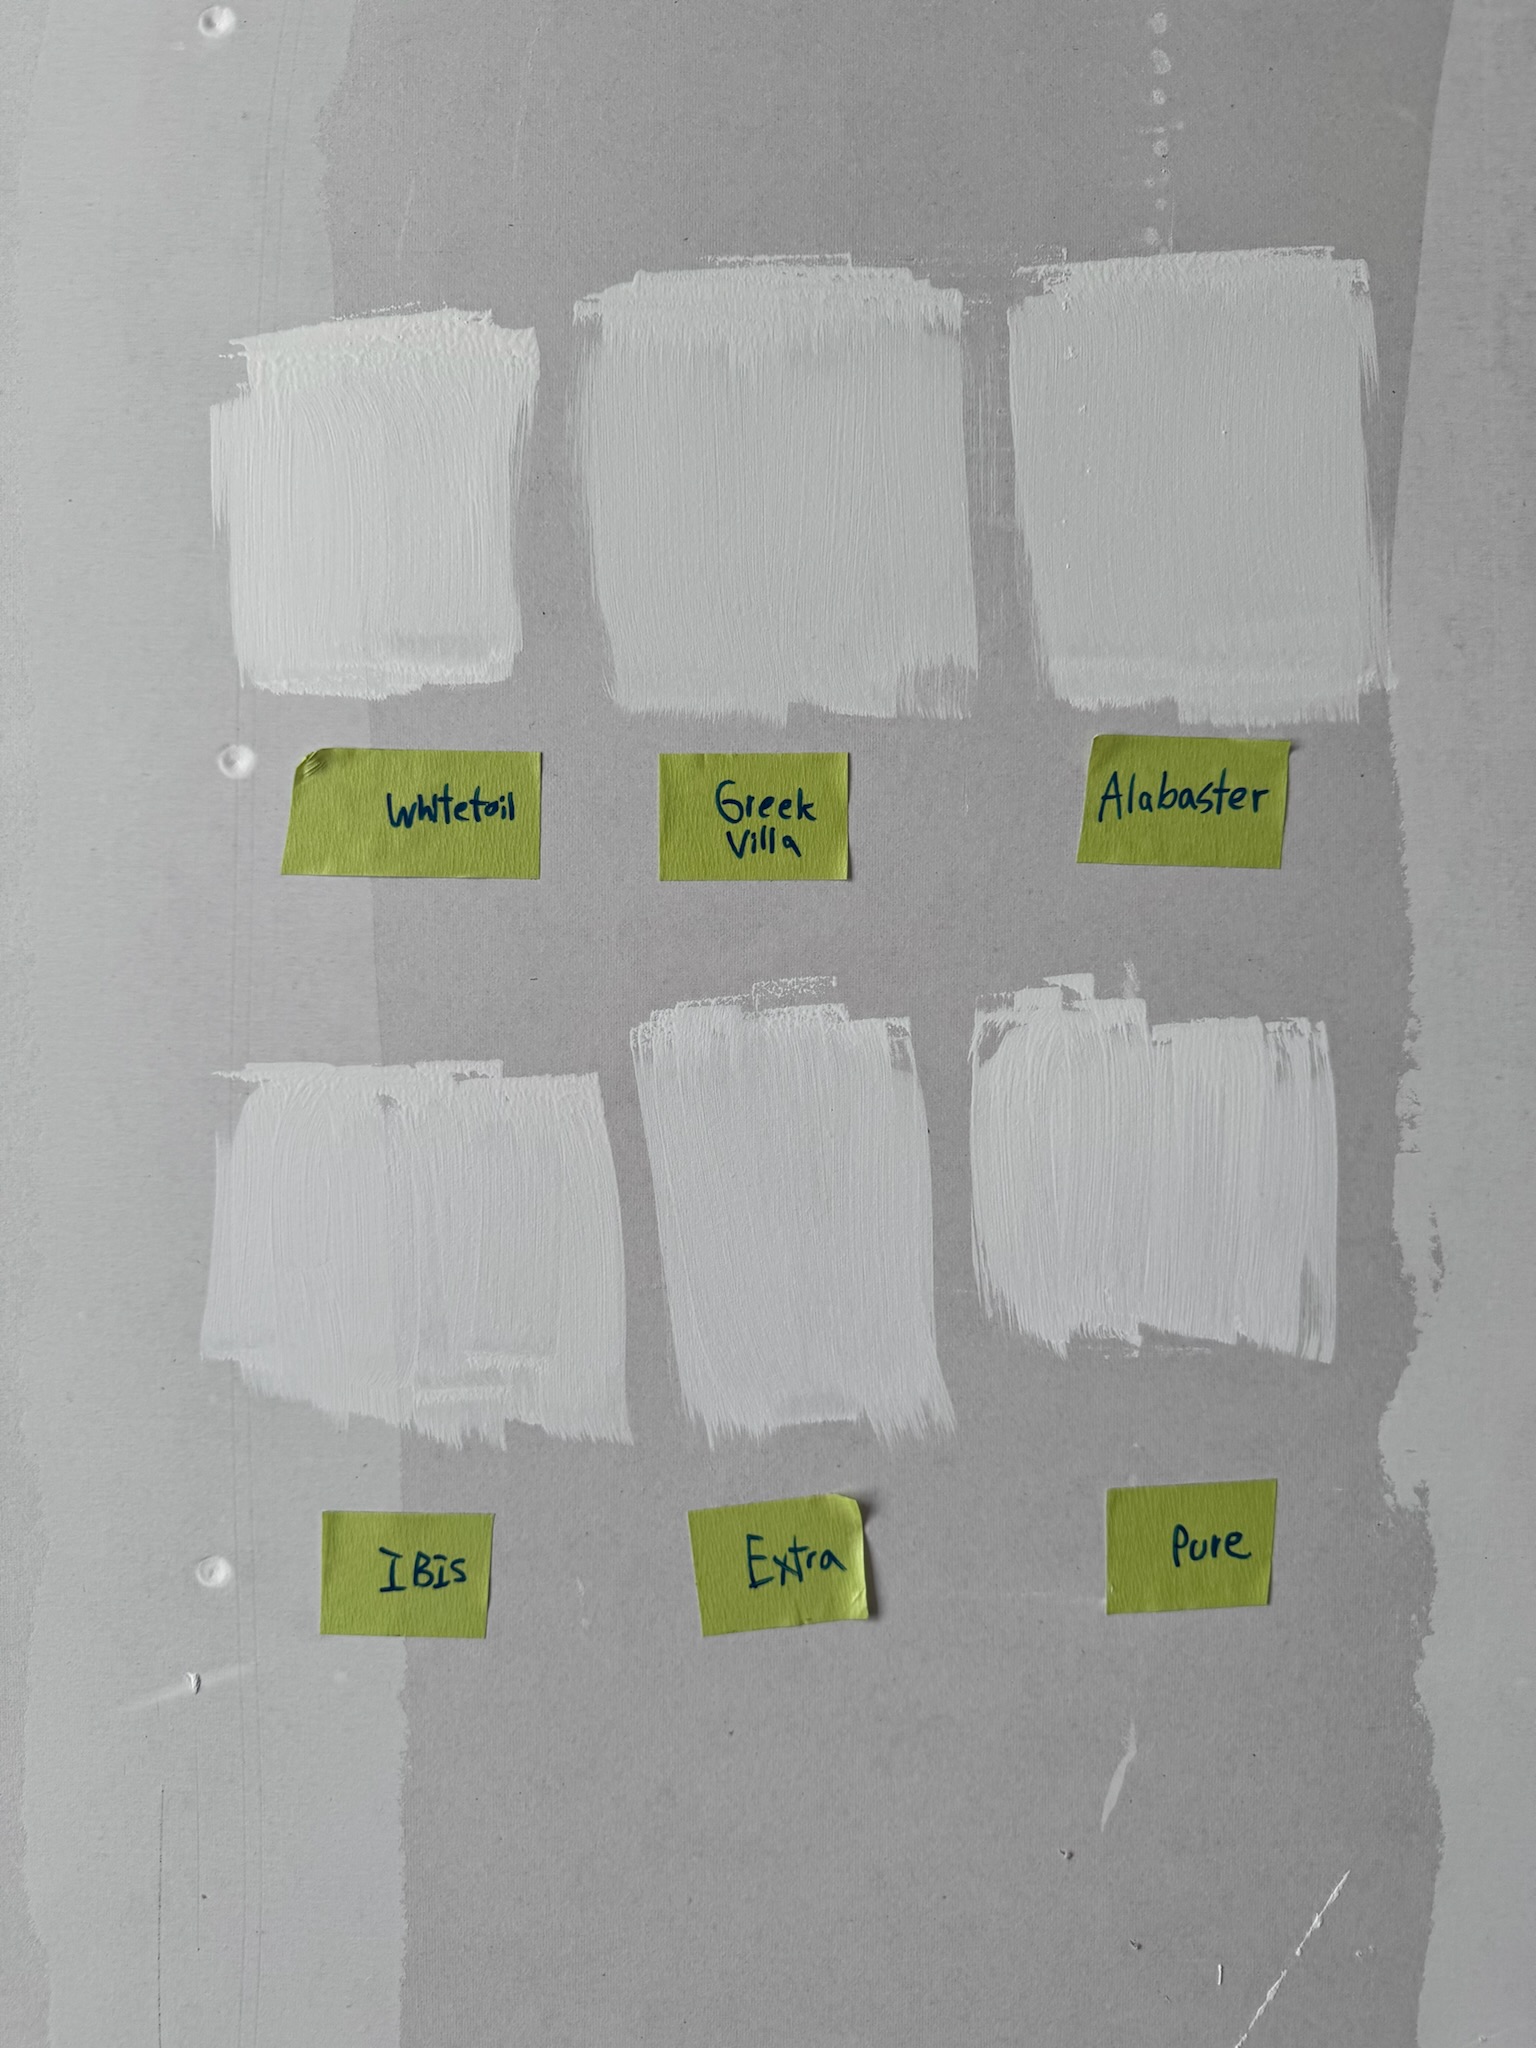 Whitetail
Greek
Villa
Alabaster
IBIs
Extra
Pure